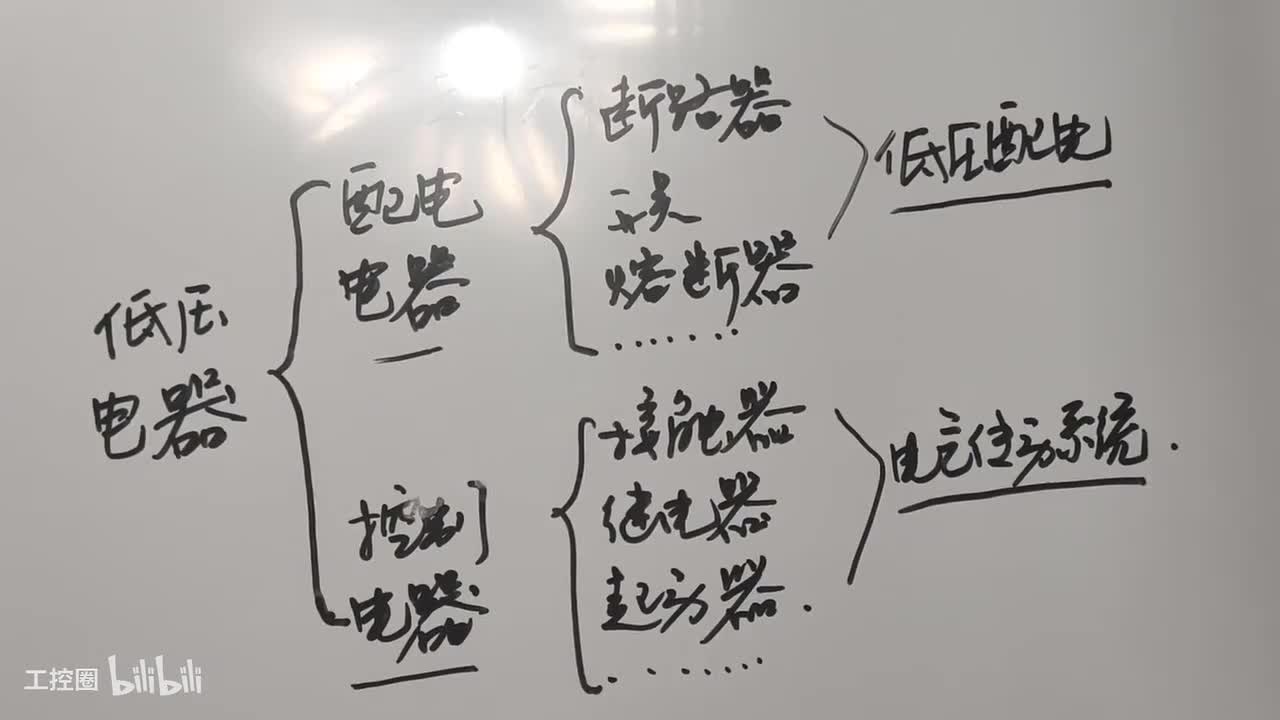 低压
电器
配电
电器
断路器
开关
熔断器
.......
低压配电
控制
电器
接触器
继电器
起动器.
........
电力传动系统.
工控圈 bilibili